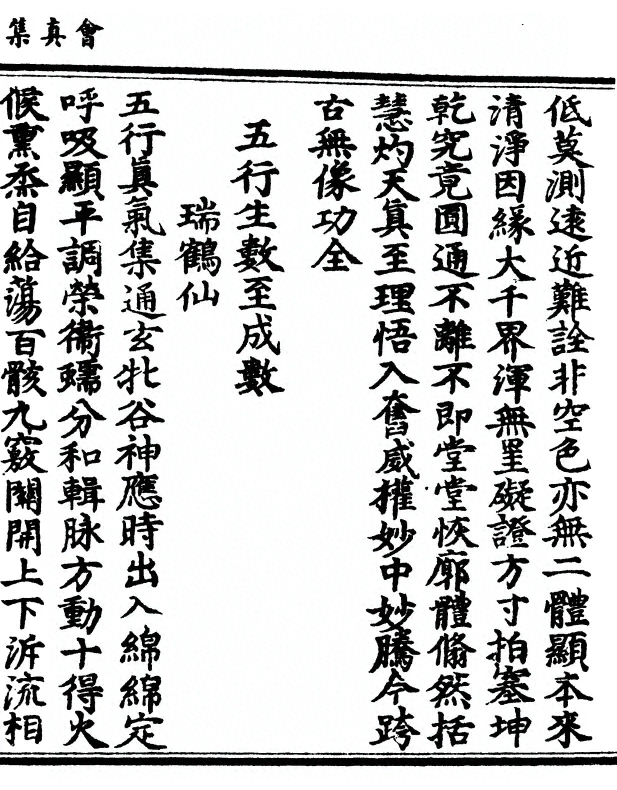 會真集
低莫測遠近難詮非空色亦無二體顯本來
清淨因緣大千界渾無罣礙證方寸拍塞坤
乾究竟圓通不離不即堂堂恢廓體翛然括
慧灼天真至理悟入奮威權妙中妙騰今跨
古無像功全
五行生數至成數
瑞鶴仙
五行真氣集通玄牝谷神應時出入綿綿定
呼吸顯平調榮衛蠕分和輯脉方動十得火
候熏烝自給蕩百骸九竅關開上下泝流相